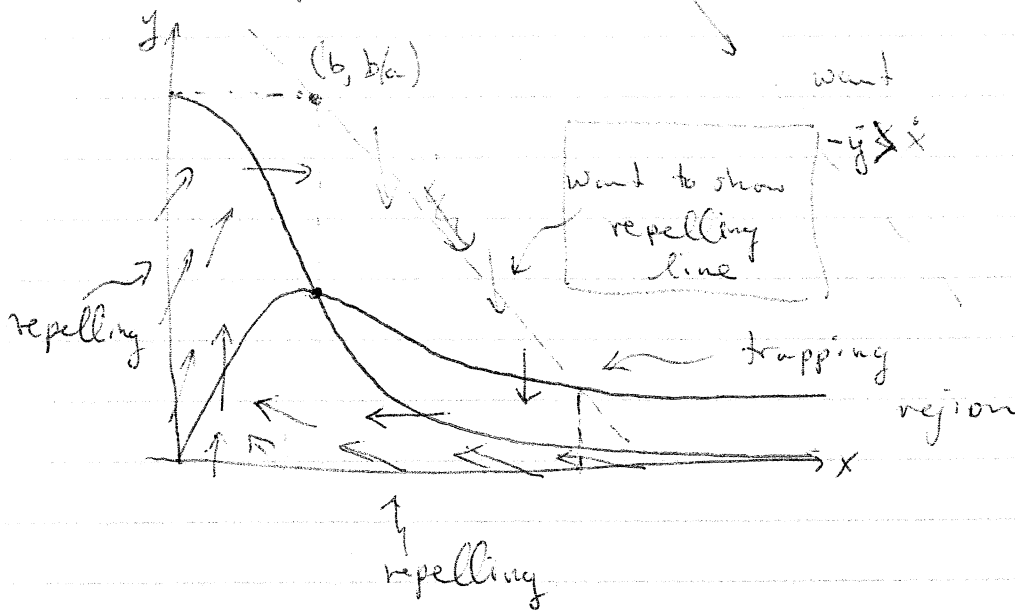 y
(b, b/a)
want
-ẏ > ẋ
want to show
repelling
line
repelling
trapping
region
x
repelling